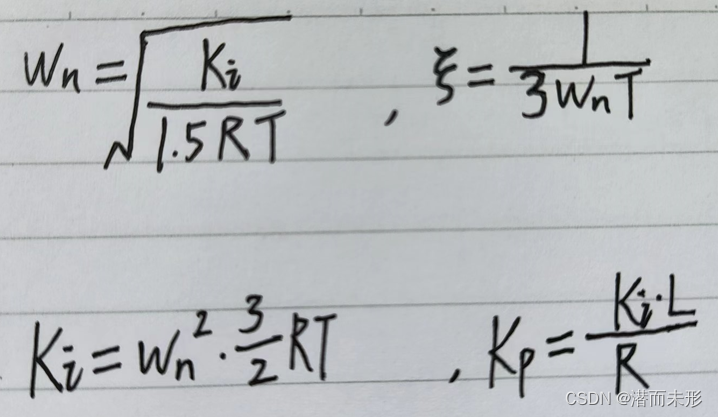 Wn = √(Ki / 1.5RT) , ξ = 1 / 3WnT
Ki = Wn² · 3/2 RT , Kp = Ki·L / R
CSDN @潜而未形